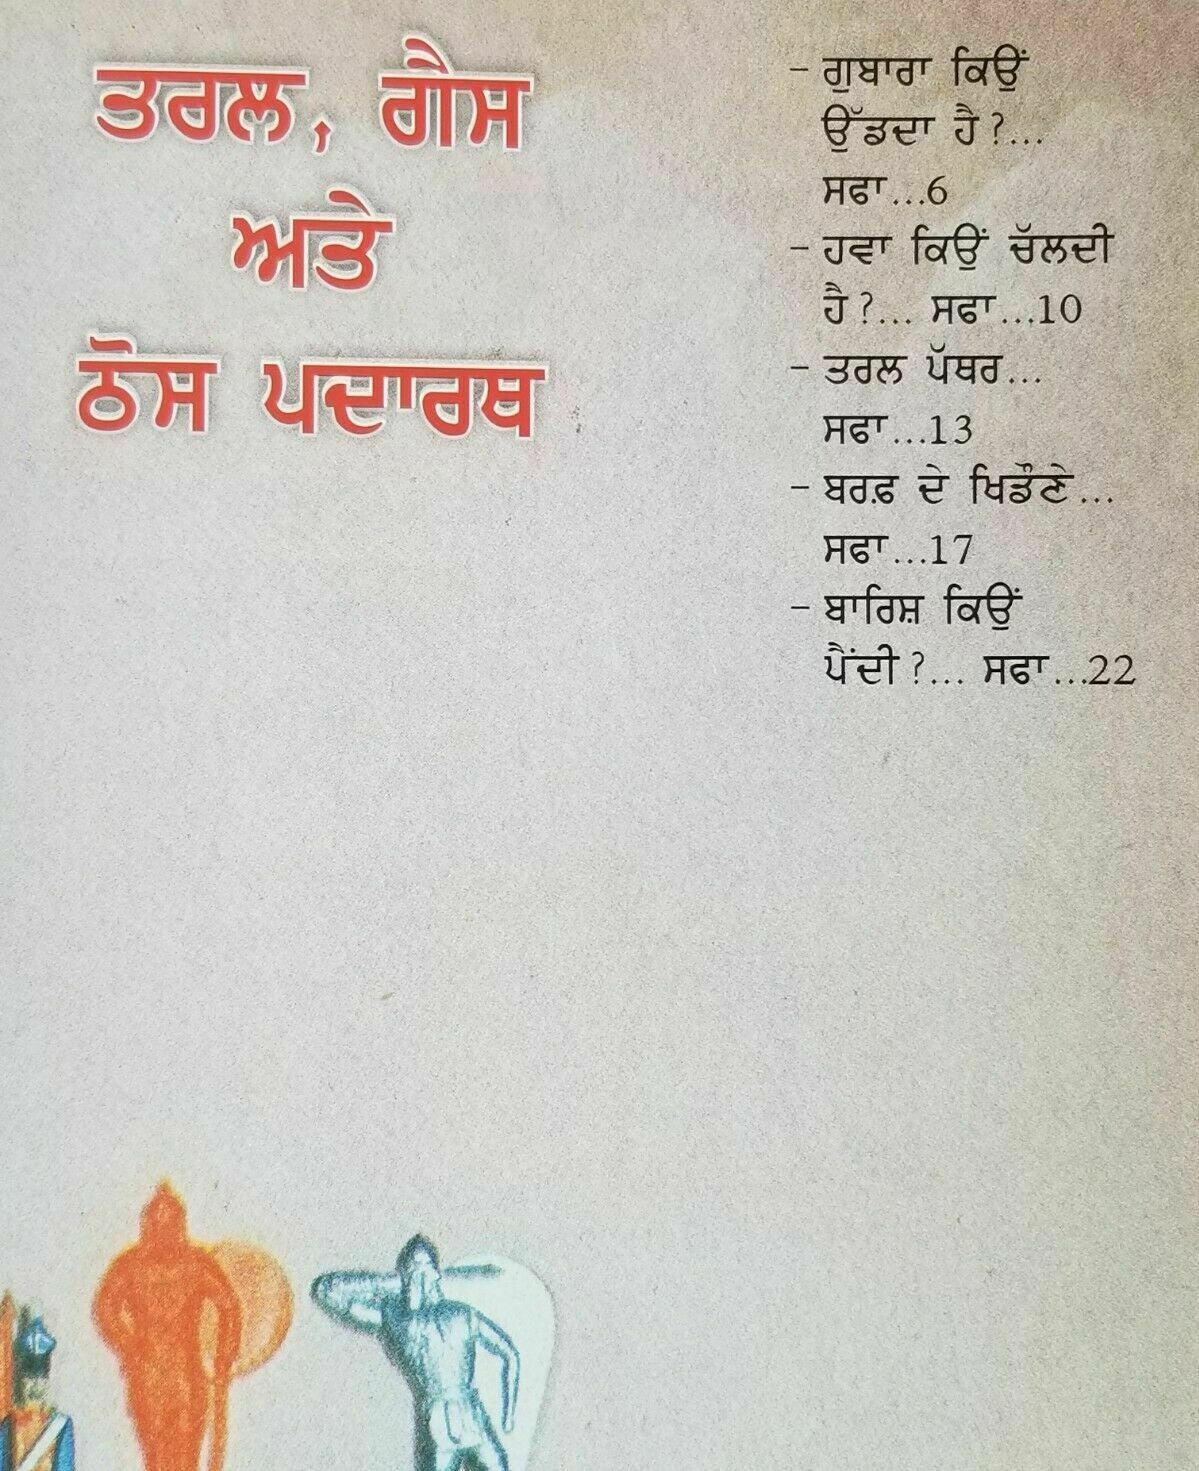 ਤਰਲ, ਗੈਸ
ਅਤੇ
ਠੋਸ ਪਦਾਰਥ
- ਗੁਬਾਰਾ ਕਿਉਂ
ਉੱਡਦਾ ਹੈ?...
ਸਫਾ...6
- ਹਵਾ ਕਿਉਂ ਚੱਲਦੀ
ਹੈ?... ਸਫਾ...10
- ਤਰਲ ਪੱਥਰ...
ਸਫਾ...13
- ਬਰਫ਼ ਦੇ ਖਿਡੌਣੇ...
ਸਫਾ...17
- ਬਾਰਿਸ਼ ਕਿਉਂ
ਪੈਂਦੀ?... ਸਫਾ...22